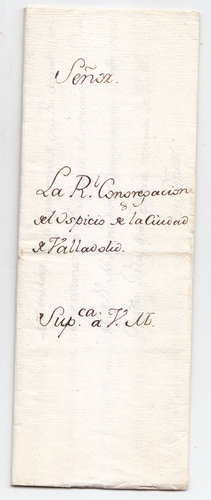 Señor.
La R.l Congregacion
del Ospicio de la Ciudad
de Valladolid.
Sup.ca a V. M.